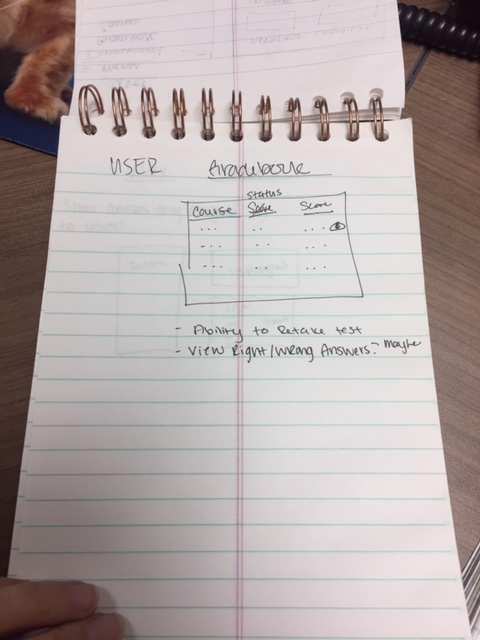 USER Gradebook
Status
Course Score Score
... .. ...
... .. ...
... .. ...
- Ability to Retake test
- View Right/Wrong Answers? maybe